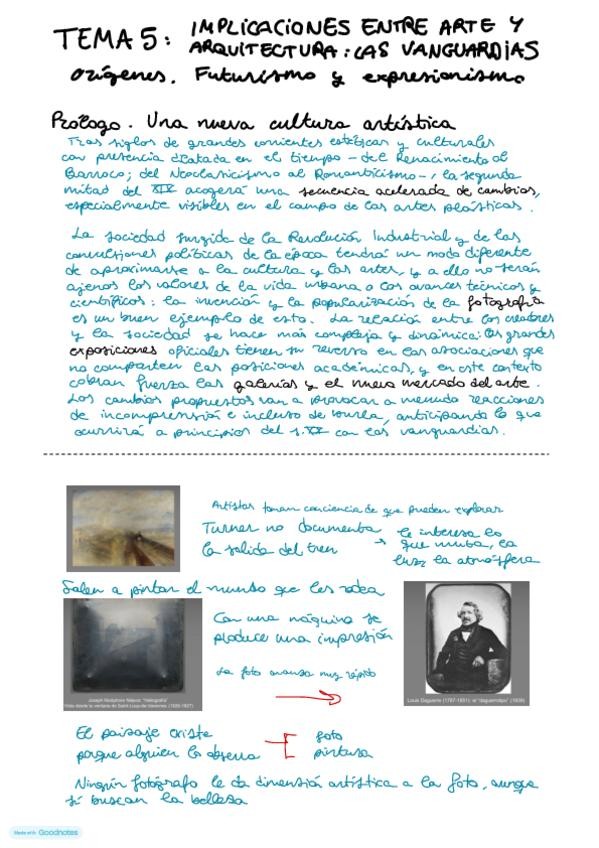 TEMA 5: IMPLICACIONES ENTRE ARTE Y
ARQUITECTURA: LAS VANGUARDIAS
Orígenes. Futurismo y expresionismo
Prólogo. Una nueva cultura artística
Tras siglos de grandes corrientes estéticas y culturales
con presencia dilatada en el tiempo - del Renacimiento al
Barroco; del Neoclasicismo al Romanticismo -, la segunda
mitad del XIX acogerá una secuencia acelerada de cambios,
especialmente visibles en el campo de las artes plásticas.
La sociedad surgida de la Revolución Industrial y de las
convulsiones políticas de la época tendrá un modo diferente
de aproximarse a la cultura y las artes, y a ello no serán
ajenos los valores de la vida urbana o los avances técnicos y
científicos: la invención y la popularización de la fotografía
es un buen ejemplo de esto. La relación entre los creadores
y la sociedad se hace más compleja y dinámica: las grandes
exposiciones oficiales tienen su reverso en las asociaciones que
no comparten las posiciones académicas, y en este contexto
cobran fuerza las galerías y el nuevo mercado del arte.
Los cambios propuestos van a provocar a menudo reacciones
de incomprensión e incluso de burla, anticipando lo que
ocurrirá a principios del s.XX con las vanguardias.
Artistas toman conciencia de que pueden explorar
Turner no documenta
la salida del tren
→ le interesa lo
que muta, la
luz, la atmósfera
Salen a pintar el mundo que les rodea
Con una máquina se
produce una impresión
La foto avanza muy rápido
Joseph Nicéphore Niépce: "Heliografía"
Vista desde la ventana de Saint-Loup-de-Varennes. (1826-1827)
Louis Daguerre (1787-1851): el "daguerrotipo" (1839)
El paisaje existe
porque alguien lo observa
foto
pintura
Ningún fotógrafo le da dimensión artística a la foto, aunque
sí buscan la belleza
Made with Goodnotes